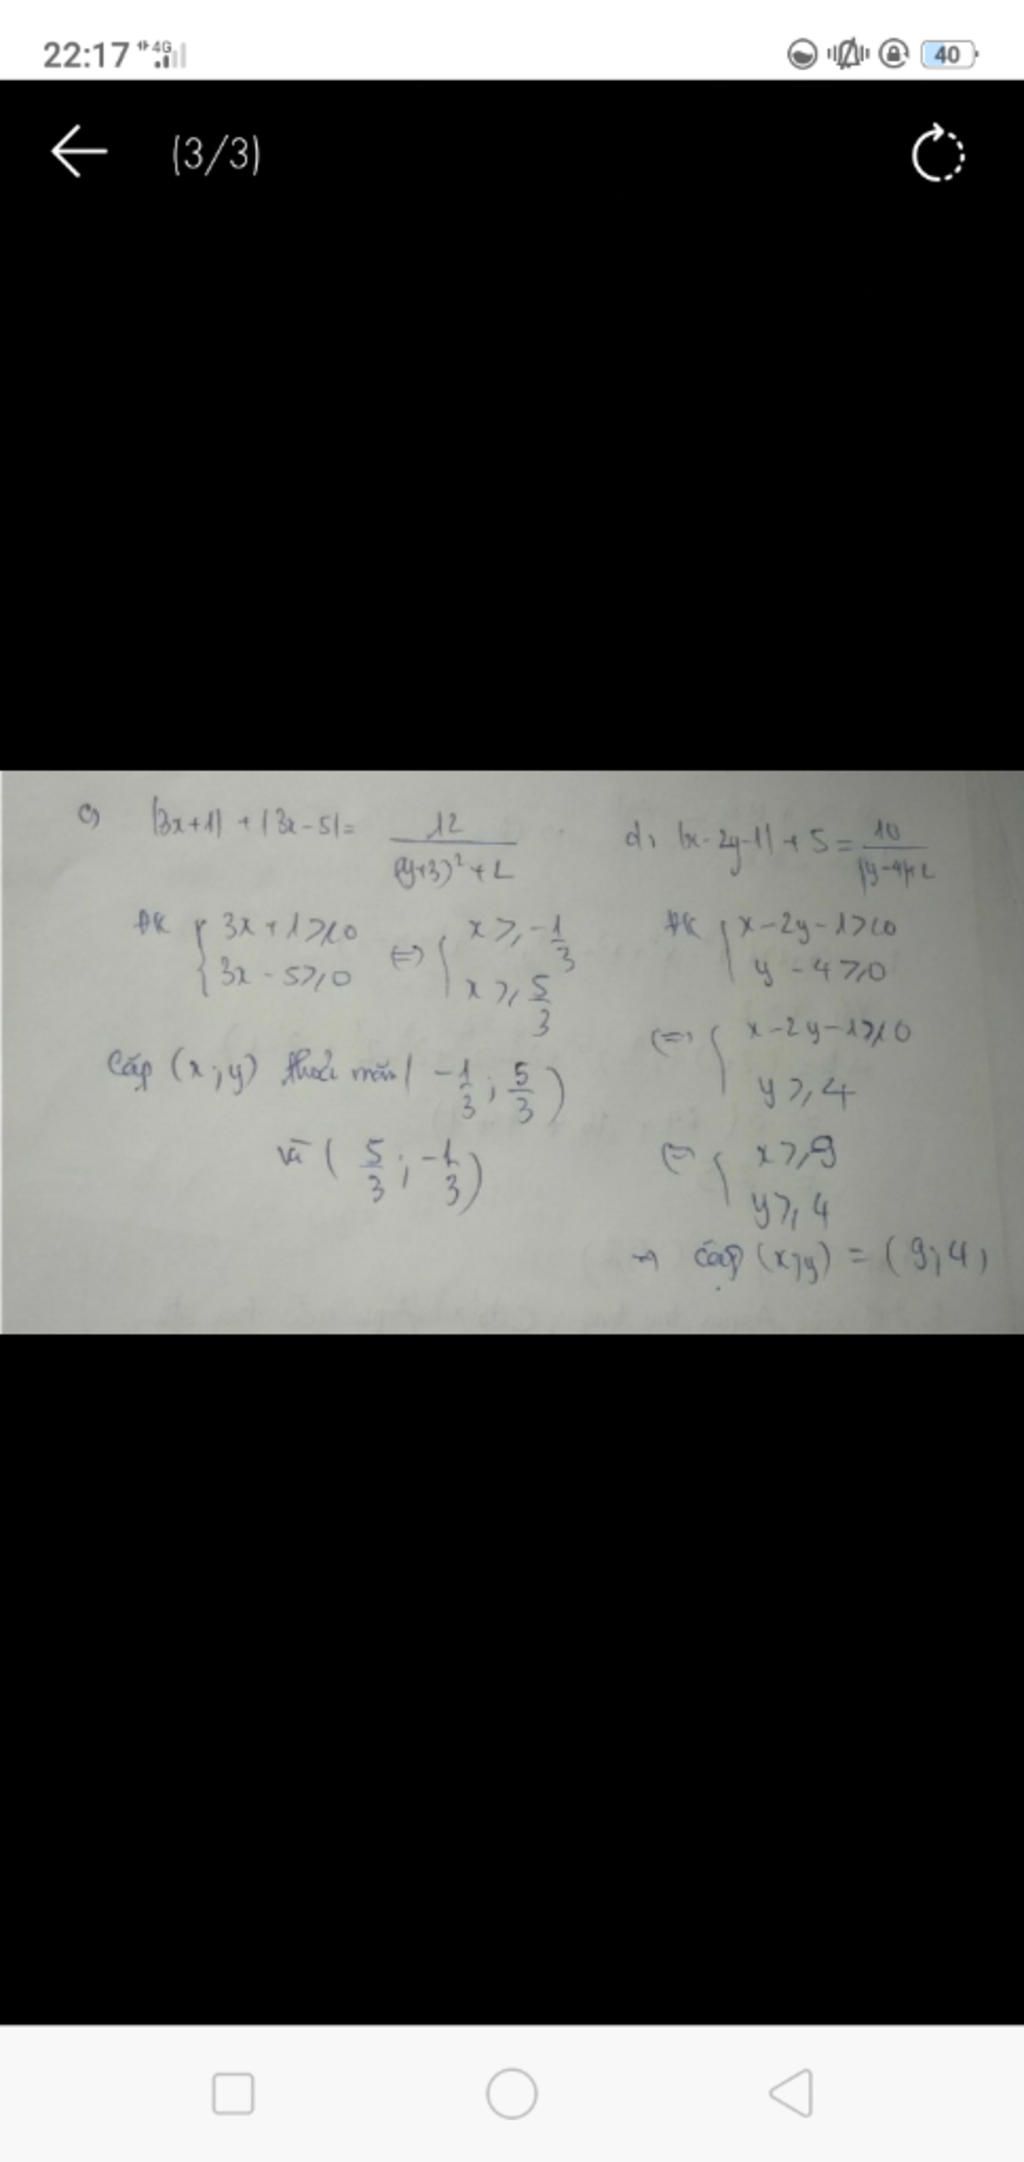 22:17 4G 40
(3/3)
c) |3x+1| + |3x-5| = 12 / (y+3)²+2
ĐK { 3x+1 ≥ 0
3x-5 ≥ 0
⇔ { x ≥ -1/3
x ≥ 5/3
Cặp (x;y) thoả mãn (-1/3; 5/3)
và (5/3; -1/3)
d, |x-2y-1| + 5 = 10 / |y-4|+2
ĐK { x-2y-1 ≥ 0
y-4 ≥ 0
⇔ { x-2y-1 ≥ 0
y ≥ 4
⇔ { x ≥ 9
y ≥ 4
→ Cặp (x;y) = (9;4)